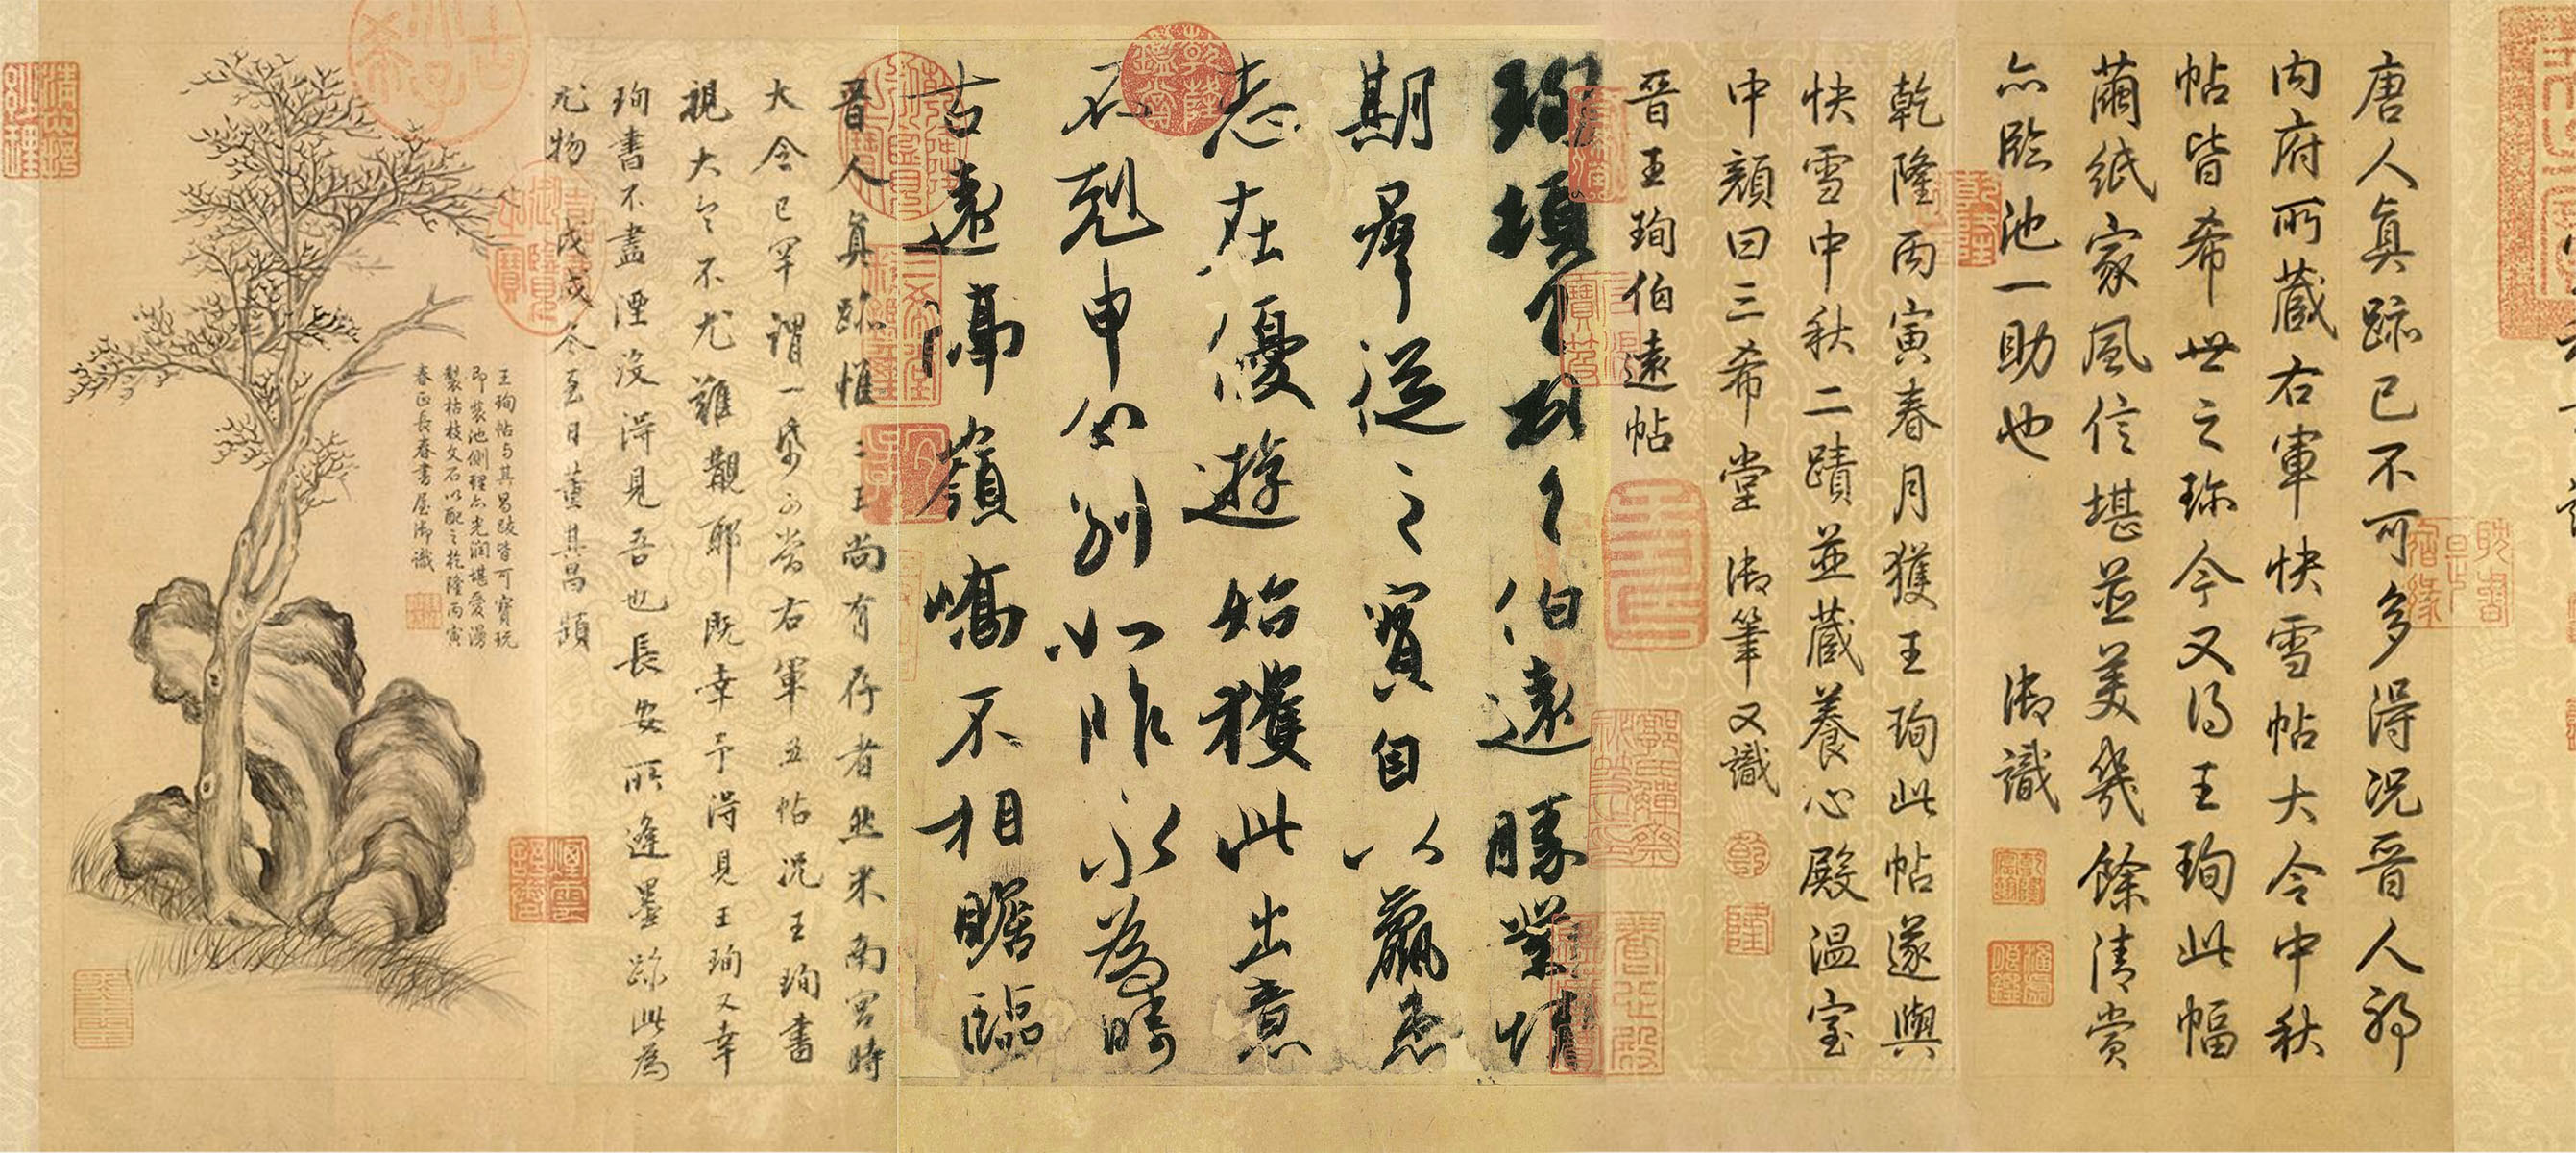 唐人真跡已不可多得況晉人耶
內府所藏右軍快雪帖大令中秋
帖皆希世之珎今又得王珣此幅
繭紙家風信堪並美幾餘清賞
亦臨池一助也 御識
乾隆丙寅春月獲王珣此帖遂與
快雪中秋二蹟並藏養心殿溫室
中顏曰三希堂 御筆又識
乾
隆
晉王珣伯遠帖
珣頓首頓首伯遠勝業情
期羣從之寶自以羸患
志在優遊始獲此出意
不剋申分別如昨永為疇
古遠隔嶺嶠不相瞻臨
晉人真跡惟二王尚有存者然米南宮時
大令已罕謂一紙可當右軍五帖況王珣書
視大令不尤難覯耶既幸予得見王珣又幸
珣書不盡湮沒得見吾也長安所逢墨跡此為
尤物 戊戌冬至日董其昌題
王珣帖與其昌跋皆可寶玩
即裝池側理亦光潤堪愛漫
製枯枝文石以配之乾隆丙寅
春正長春書屋御識